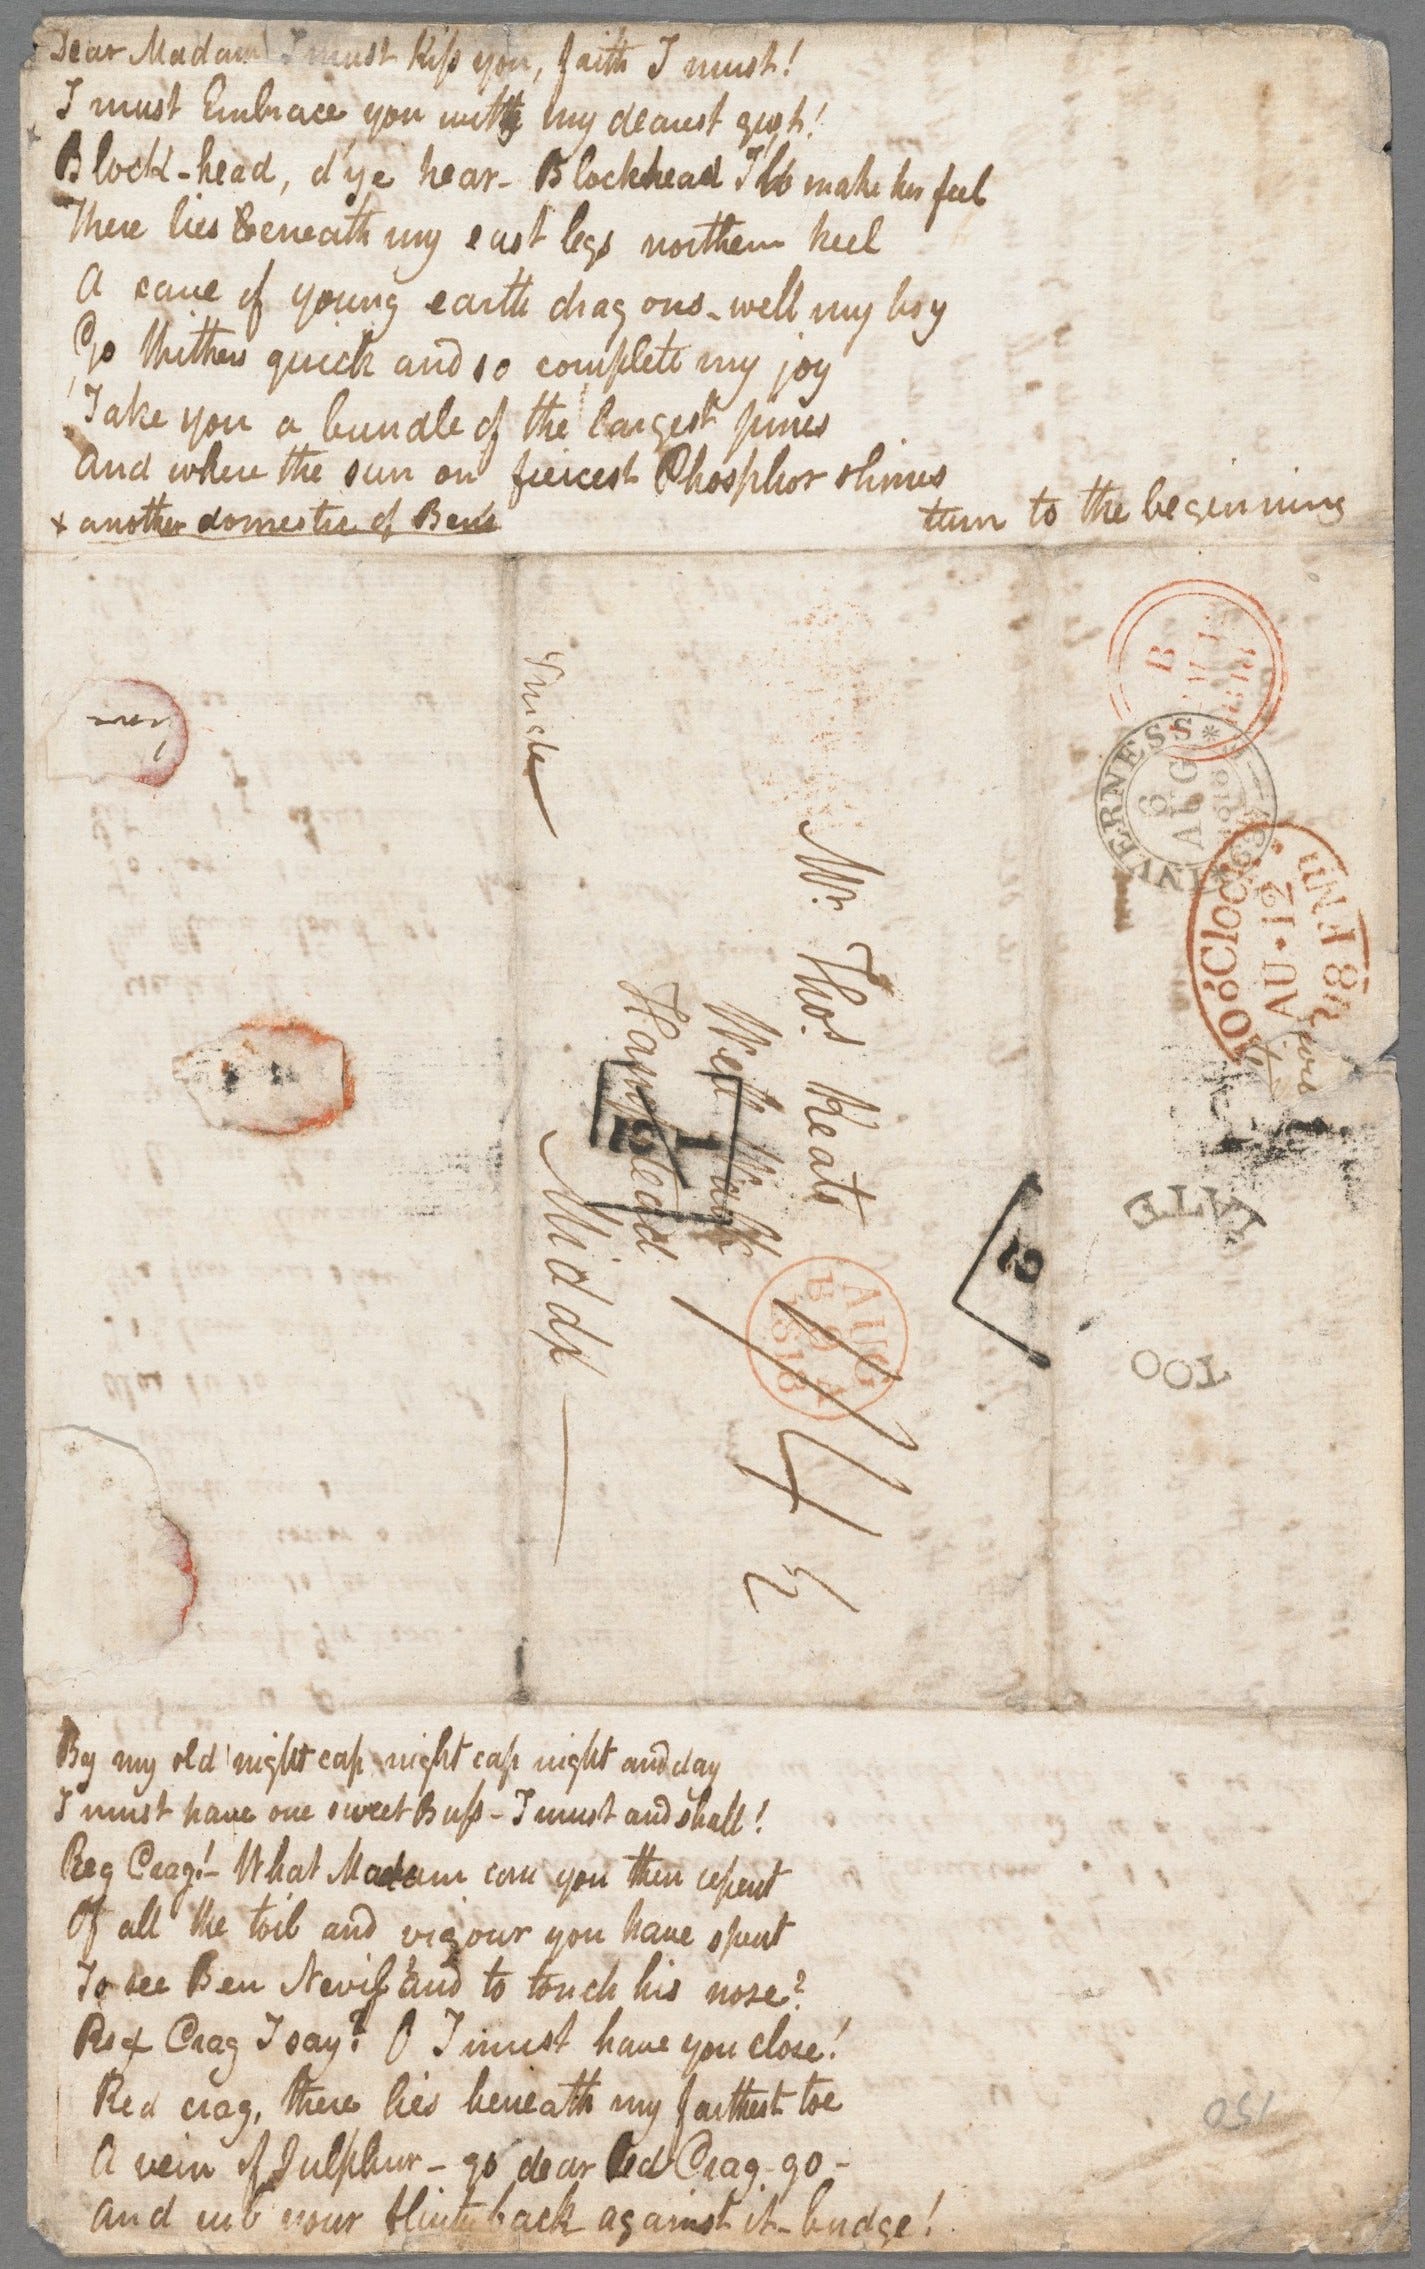 Dear Madam I must kiss you, faith I must!
I must Embrace you with my dearest gust!
Block-head, d'ye hear - Blockhead I'll make her feel
There lies beneath my east legs northern heel
A cave of young earth dragons - well my boy
Go thithers quick and so complete my joy
Take you a bundle of the largest pines
And where the sun on fiercest Phosphor shines
+ another domestic of Ben's
turn to the beginning
Single
Mr. Thos. Keats
Well Walk
Hampstead
Middx
1/4½
INVERNESS
6
AUG
1818
10 o'Clock
AU 12
1818 FNn
AUG
B 9 A
1818
B
½
2
TOO
LATE
By my old night cap night cap night and day
I must have one sweet Buss - I must and shall!
Red Crag! - What Madam can you then repent
Of all the toil and vigour you have spent
To see Ben Nevis and to touch his nose?
Red Crag I say! O I must have you close!
Red crag, there lies beneath my farthest toe
A vein of Sulphur - go dear Red Crag - go -
And rub your flinty back against it - budge!
150